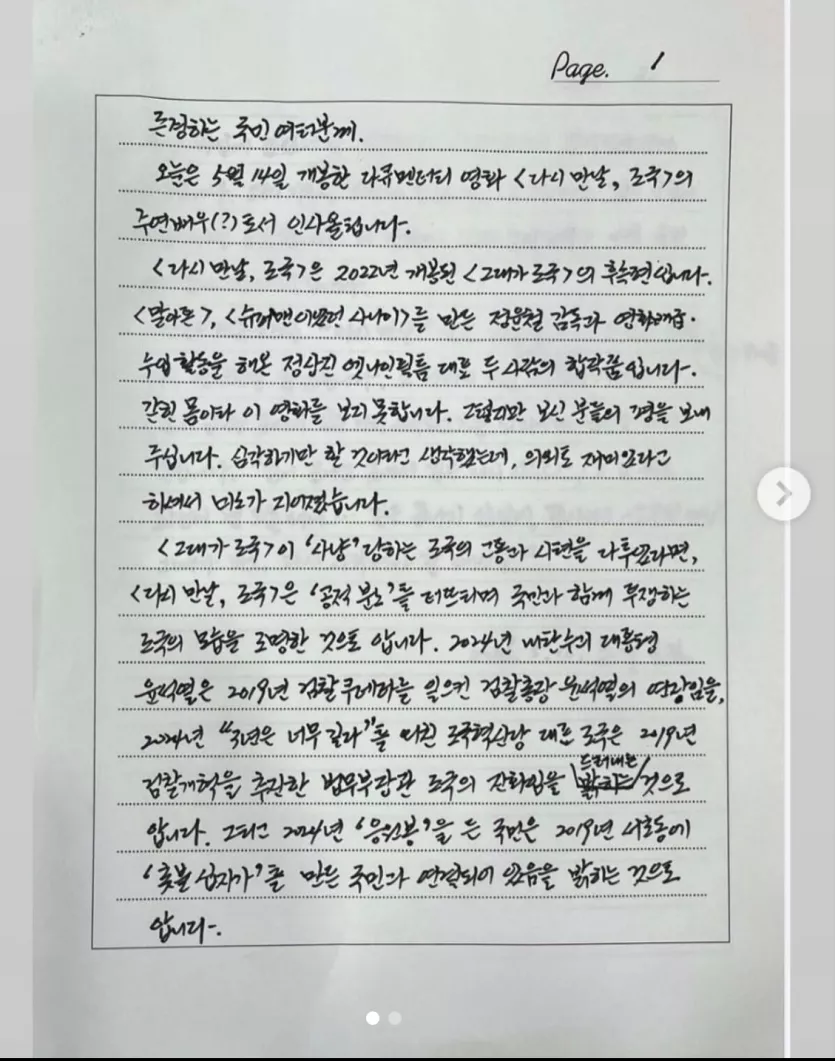 Page. 1
존경하는 국민 여러분께.
오늘은 5월 14일 개봉한 다큐멘터리 영화 <다시 만날, 조국>의
주연배우(?)로서 인사올립니다.
<다시 만날, 조국>은 2022년 개봉된 <그대가 조국>의 후속편입니다.
<말아톤>, <슈퍼맨이었던 사나이>를 만든 정윤철 감독과 영화배급·
수입 활동을 해온 정상진 엣나인필름 대표 두 사람의 합작품입니다.
갇힌 몸이라 이 영화를 보지 못합니다. 그렇지만 보신 분들의 평을 보내
주십니다. 심각하기만 할 것이라고 생각했는데, 의외로 재미있다고
하셔서 미소가 지어졌습니다.
<그대가 조국>이 '사냥'당하는 조국의 고통과 시련을 다루었다면,
<다시 만날, 조국>은 '공적 분노'를 터뜨리며 국민과 함께 투쟁하는
조국의 모습을 조명한 것으로 압니다. 2024년 내란수괴 대통령
윤석열은 2019년 검찰쿠데타를 일으킨 검찰총장 윤석열의 연장임을,
2024년 "3년은 너무 길다"를 외친 조국혁신당 대표 조국은 2019년
드러내는
검찰개혁을 추진한 법무부장관 조국의 진화임을 밝히는 것으로
압니다. 그리고 2024년 '응원봉'을 든 국민은 2019년 서초동에
'촛불 십자가'를 만든 국민과 연결되어 있음을 밝히는 것으로
압니다.